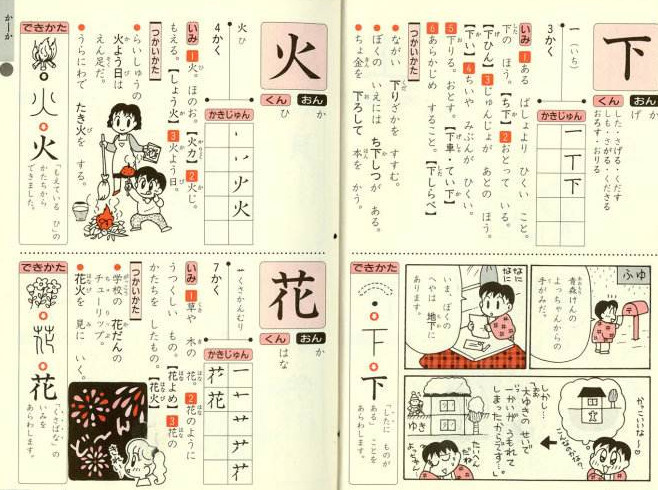 下
おん
くん
か
げ
した・さげる・くだす
しも・さがる・くださる
おろす・おりる
一 (いち)
3かく
かきじゅん
一
丅
下
いみ
1 ある ばしょより ひくい こと。
下の ほう。【ち下】 2 おとって いる。
【下ひん】 3 じゅんじょが あとの ほう。
【下】 4 ちいや みぶんが ひくい。
5 下りる。おとす。【下車・てい下】
6 あらかじめ すること。【下しらべ】
つかいかた
●ながい 下りざかを すすむ。
●ぼくの いえには ち下しつが ある。
●ちょ金を 下ろして 本を かう。
ふゆ
青森けんの
よっちゃんからの
手がみだ。
なになに
いま、ぼくの
へやは 地下に
あります。
かっこいいな〜
しかし…
大ゆきの せいで
一かいが うもれて
しまったからです…。
ゆき
たいへんだね
よっちゃん…
できかた
下
下
「したに ものが
ある」 ことを
あらわします。
かーか
火
おん
くん
か
ひ
火 ひ
4かく
かきじゅん
火
火
いみ
1 火。ほのお。【火力】 2 火じ。
もえる。【しょう火】 3 火よう日。
つかいかた
●らいしゅうの
火よう日は
えん足だ。
●うらにわで たき火を する。
できかた
火
火
「もえている ひ」の
かたちから
できました。
花
おん
くん
か
はな
艹 くさかんむり
7かく
かきじゅん
一
艹
花
花
いみ
1 草や 木の 花。 2 花のように
うつくしい もの。【花よめ】 3 花の
かたちを したもの。【花火】
つかいかた
●学校の 花だんの
チューリップ。
●花火を 見に いく。
できかた
花
花
「くさばな」の
いみを
あらわします。